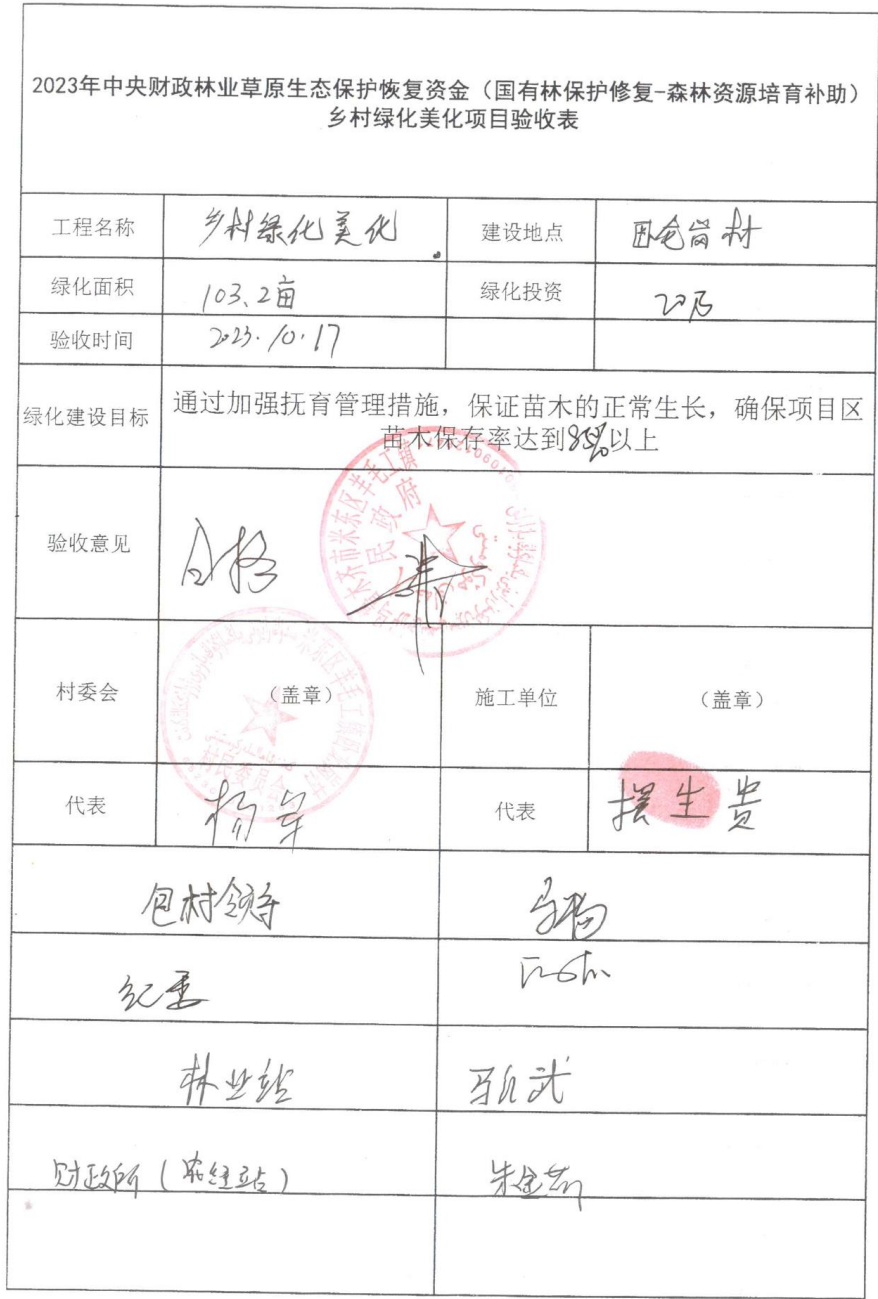 2023年中央财政林业草原生态保护恢复资金（国有林保护修复-森林资源培育补助）
乡村绿化美化项目验收表
工程名称 乡村绿化美化 建设地点
绿化面积 103.2亩 绿化投资 20万
验收时间 2023.10.17
绿化建设目标 通过加强抚育管理措施，保证苗木的正常生长，确保项目区
苗木保存率达到85%以上
验收意见 合格
米东区羊毛工镇
民政府
村委会 （盖章） 施工单位 （盖章）
村民委员会
代表 杨军 代表 摆生贵
包村领导
纪委
林业站
财政所（农经站）